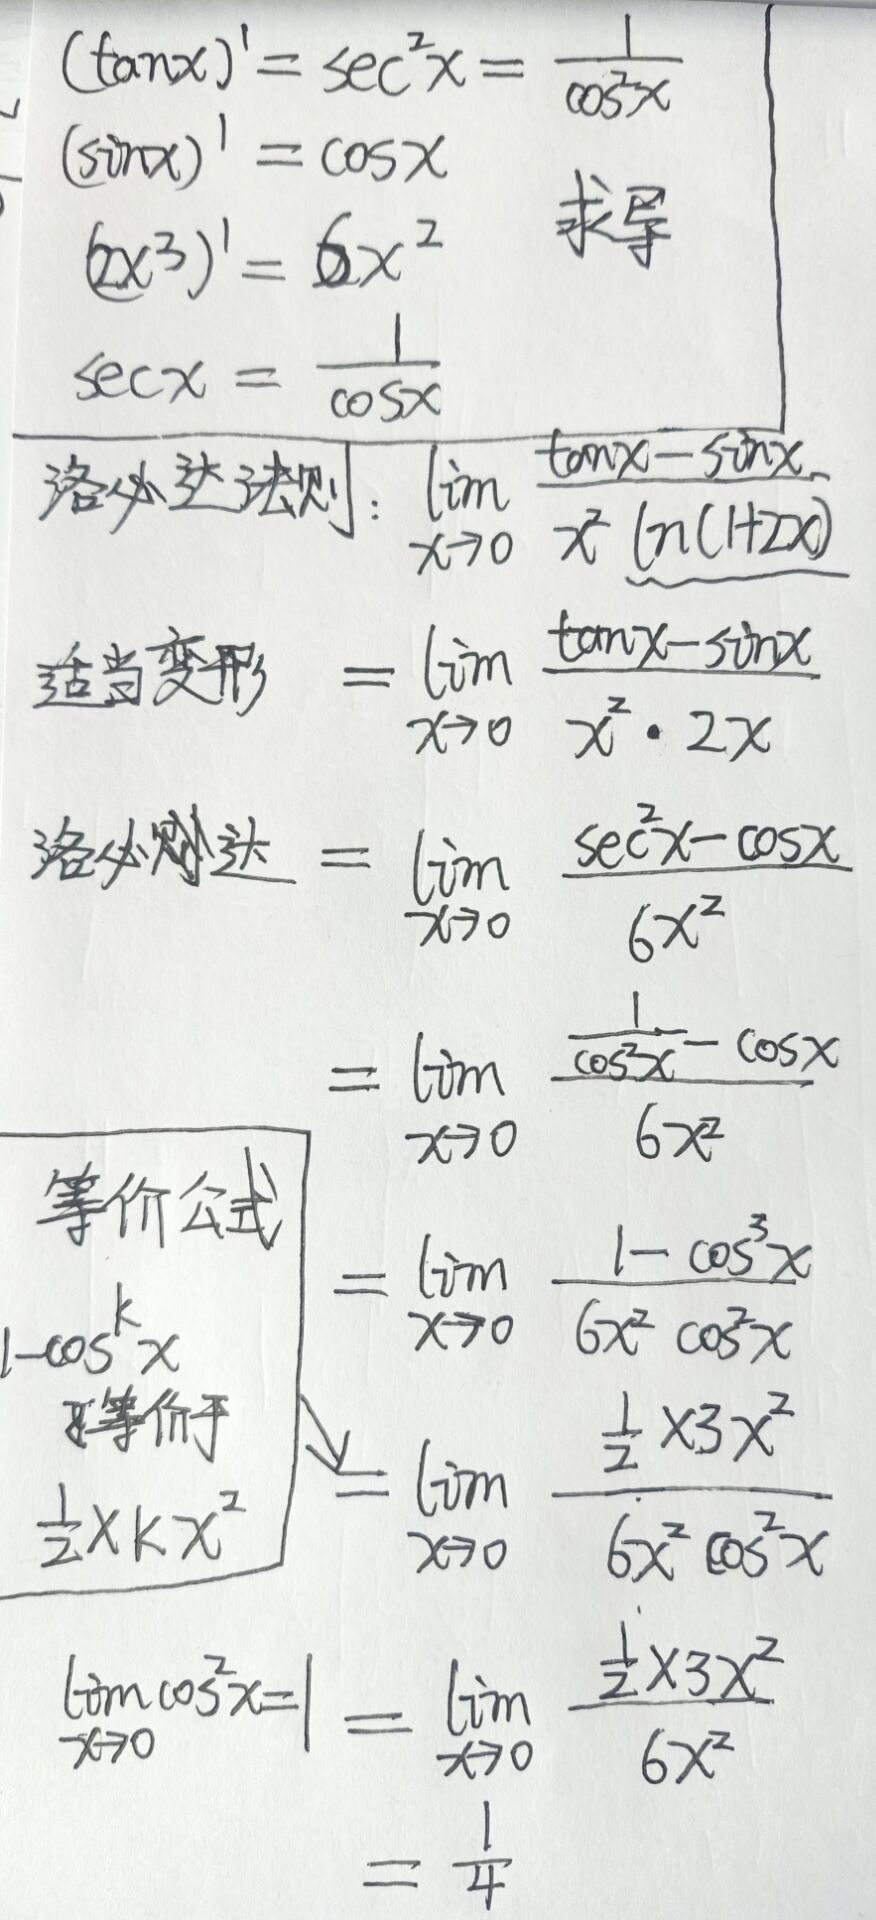 (tanx)' = sec²x = 1/cos²x
(sinx)' = cosx
求导
(2x³)' = 6x²
secx = 1/cosx
洛必达法则: lim x→0 (tanx-sinx)/(x² ln(1+2x))
适当变形 = lim x→0 (tanx-sinx)/(x²·2x)
洛必达 = lim x→0 (sec²x-cosx)/(6x²)
= lim x→0 (1/cos²x - cosx)/(6x²)
等价公式
1-cosᵏx
等价于
1/2×kx²
= lim x→0 (1-cos³x)/(6x² cos²x)
= lim x→0 (1/2×3x²)/(6x² cos²x)
lim x→0 cos²x=1 = lim x→0 (1/2×3x²)/(6x²)
= 1/4